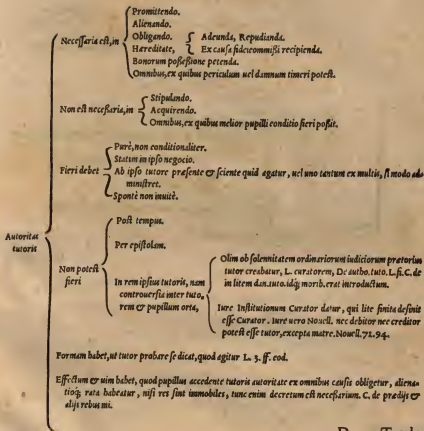 Promittendo.
Alienando.
Necessaria est, in
Obligando.
Adeunda, Repudianda.
Hæreditate,
Ex causa fideicommissi recipienda.
Bonorum possessione petenda.
Omnibus, ex quibus periculum uel damnum timeri potest.
Stipulando.
Non est necessaria, in
Acquirendo.
Omnibus, ex quibus melior pupilli conditio fieri possit.
Purè, non conditionaliter.
Statim in ipso negocio.
Fieri debet
Ab ipso tutore præsente & sciente quid agatur, uel uno tantum ex multis, si modo ad-
ministret.
Spontè non inuitè.
Autoritas
tutoris
Post tempus.
Per epistolam.
Non potest
fieri
In rem ipsius tutoris, nam
controuersia inter tuto,
rem & pupillum orta,
Olim ob solennitatem ordinariorum iudiciorum prætorius
tutor creabatur, L. curatorem, De autho. tuto. L. fi. C. de
in litem dan. tuto. idq; morib. erat introductum.
Iure Institutionum Curator datur, qui lite finita desinit
esse Curator. Iure uero Nouell. nec debitor nec creditor
potest esse tutor, excepta matre. Nouell. 72. 94.
Formam habet, ut tutor probare se dicat, quod agitur L. 3. ff. eod.
Effectum & uim habet, quod pupillus accedente tutoris autoritate ex omnibus causis obligetur, aliena-
tioq; rata habeatur, nisi res sint immobiles, tunc enim decretum est necessarium. C. de prædijs &
alijs rebus mi.